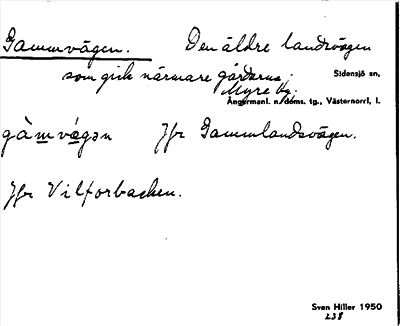 Gammvägen. Den äldre landsvägen
som gick närmare gårdarna.
Sidensjö sn,
Myre by.
Ångermanl. n. doms. tg., Västernorrl. l.
gàmvẹgən Jfr Gammlandsvägen.
Jfr Vilforbacken.
Sven Hiller 1950
238